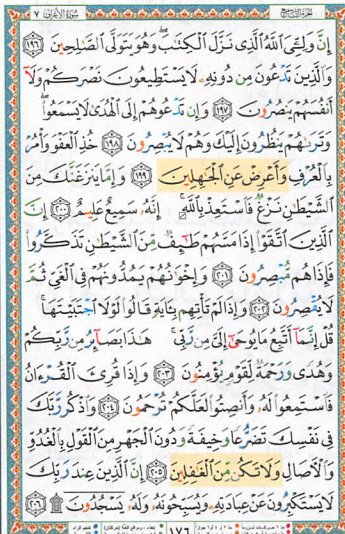 الجزء التاسع سورة الأعراف ٧
إِنَّ وَلِـِّۧيَ ٱللَّهُ ٱلَّذِي نَزَّلَ ٱلْكِتَٰبَ ۖ وَهُوَ يَتَوَلَّى ٱلصَّٰلِحِينَ ١٩٦
وَٱلَّذِينَ تَدْعُونَ مِن دُونِهِۦ لَا يَسْتَطِيعُونَ نَصْرَكُمْ وَلَآ
أَنفُسَهُمْ يَنصُرُونَ ١٩٧ وَإِن تَدْعُوهُمْ إِلَى ٱلْهُدَىٰ لَا يَسْمَعُوا۟ ۖ
وَتَرَىٰهُمْ يَنظُرُونَ إِلَيْكَ وَهُمْ لَا يُبْصِرُونَ ١٩٨ خُذِ ٱلْعَفْوَ وَأْمُرْ
بِٱلْعُرْفِ وَأَعْرِضْ عَنِ ٱلْجَٰهِلِينَ ١٩٩ وَإِمَّا يَنزَغَنَّكَ مِنَ
ٱلشَّيْطَٰنِ نَزْغٌ فَٱسْتَعِذْ بِٱللَّهِ ۚ إِنَّهُۥ سَمِيعٌ عَلِيمٌ ٢٠٠ إِنَّ
ٱلَّذِينَ ٱتَّقَوْا۟ إِذَا مَسَّهُمْ طَٰٓئِفٌ مِّنَ ٱلشَّيْطَٰنِ تَذَكَّرُوا۟
فَإِذَا هُم مُّبْصِرُونَ ٢٠١ وَإِخْوَٰنُهُمْ يَمُدُّونَهُمْ فِي ٱلْغَيِّ ثُمَّ
لَا يُقْصِرُونَ ٢٠٢ وَإِذَا لَمْ تَأْتِهِم بِـَٔايَةٍ قَالُوا۟ لَوْلَا ٱجْتَبَيْتَهَا ۚ
قُلْ إِنَّمَآ أَتَّبِعُ مَا يُوحَىٰٓ إِلَيَّ مِن رَّبِّي ۚ هَٰذَا بَصَآئِرُ مِن رَّبِّكُمْ
وَهُدًى وَرَحْمَةٌ لِّقَوْمٍ يُؤْمِنُونَ ٢٠٣ وَإِذَا قُرِئَ ٱلْقُرْءَانُ
فَٱسْتَمِعُوا۟ لَهُۥ وَأَنصِتُوا۟ لَعَلَّكُمْ تُرْحَمُونَ ٢٠٤ وَٱذْكُر رَّبَّكَ
فِي نَفْسِكَ تَضَرُّعًا وَخِيفَةً وَدُونَ ٱلْجَهْرِ مِنَ ٱلْقَوْلِ بِٱلْغُدُوِّ
وَٱلْءَاصَالِ وَلَا تَكُن مِّنَ ٱلْغَٰفِلِينَ ٢٠٥ إِنَّ ٱلَّذِينَ عِندَ رَبِّكَ
لَا يَسْتَكْبِرُونَ عَنْ عِبَادَتِهِۦ وَيُسَبِّحُونَهُۥ وَلَهُۥ يَسْجُدُونَ ۩ ٢٠٦
١٧٦